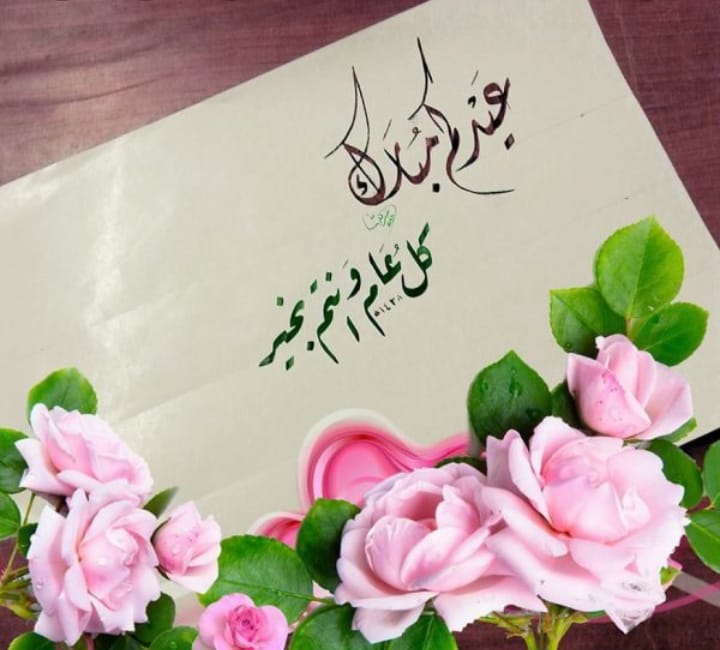 عيدكم مبارك
كل عام وانتم بخير
١٤٣٨ه